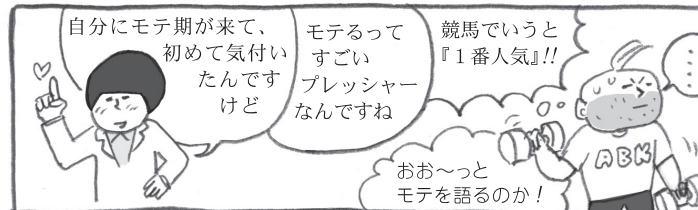 自分にモテ期が来て、
初めて気付い
たんです
けど
モテるって
すごい
プレッシャー
なんですね
競馬でいうと
『1番人気』!!
おお〜っと
モテを語るのか!
ABK
…